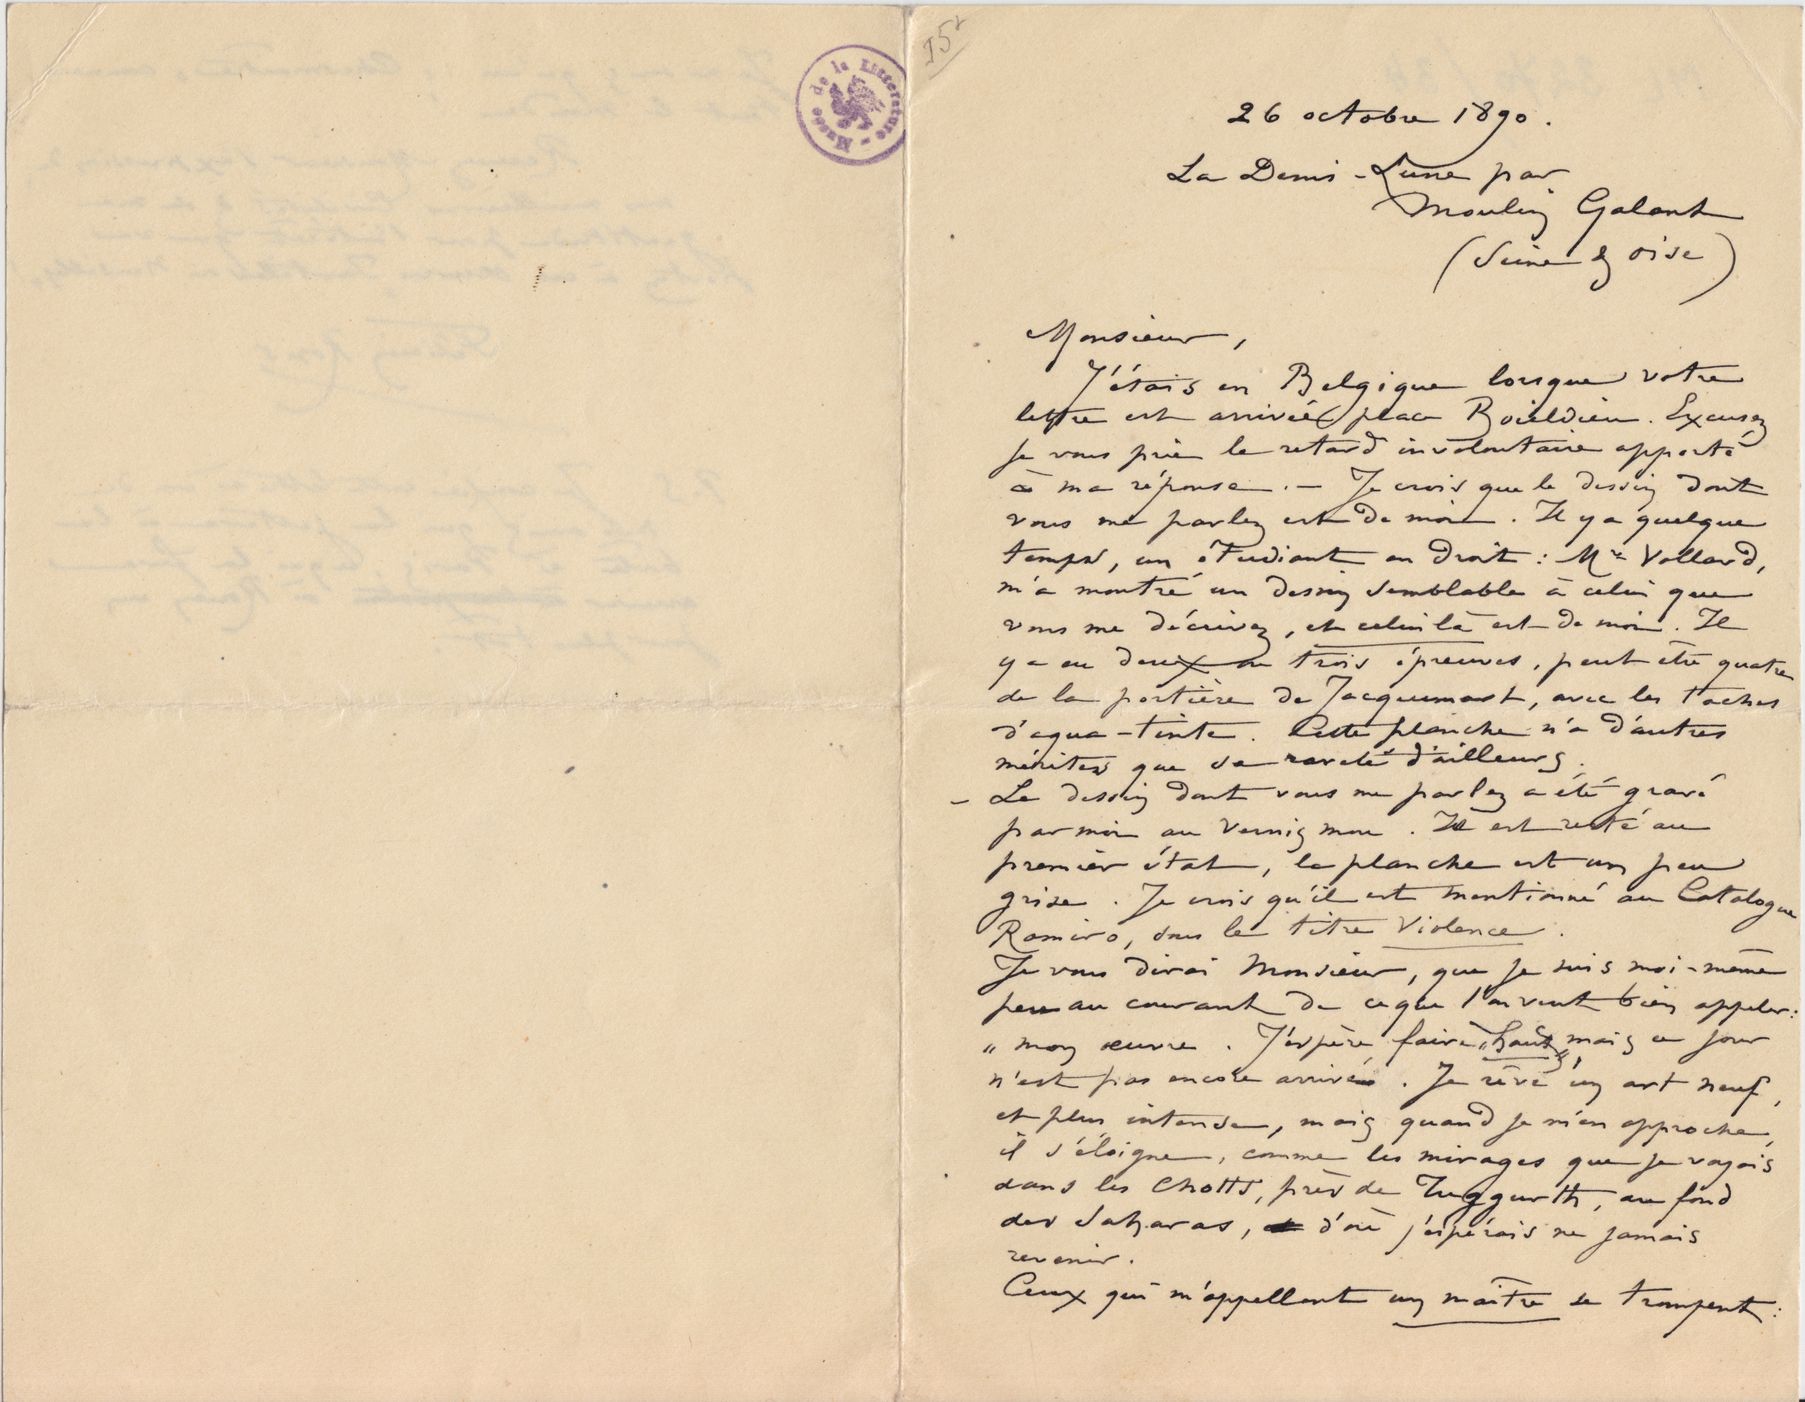 Musée de la Littérature -
15r
26 octobre 1890.
La Demi-Lune par
Moulin Galant
(Seine & Oise)
Monsieur,
J'étais en Belgique lorsque votre
lettre est arrivée place Boieldieu. Excusez
je vous prie le retard involontaire apporté
à ma réponse. — Je crois que le dessin dont
vous me parlez est de moi. Il y a quelque
temps, un étudiant en droit : Mr Vollard,
m'a montré un dessin semblable à celui que
vous me décrivez, et celui là est de moi. Il
y a eu deux ou trois épreuves, peut être quatre
de la portière de Jacquemart, avec les taches
d'aqua-tinte. Cette planche n'a d'autres
mérites que sa rareté d'ailleurs.
– Le dessin dont vous me parlez a été gravé
par moi au vernis mou. Il est resté au
premier état, la planche est un peu
grise. Je crois qu'il est mentionné au Catalogue
Ramiro, sous le titre Violence.
Je vous dirai Monsieur, que je suis moi-même
peu au courant de ce que l'on veut bien appeler :
„ mon œuvre. J'espère faire „haut„ mais ce jour
n'est pas encore arrivé. Je rêve un art neuf,
et plus intense, mais quand je m'en approche,
il s'éloigne, comme les mirages que je voyais
dans les Chotts, près de Tuggurth, au fond
des Saharas, d'où j'espérais ne jamais
revenir.
Ceux qui m'appellent un maître se trompent :